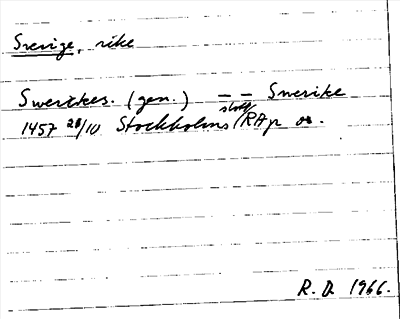 Sverige, rike
Swerikes. (gen.) – – Swerike
1457 28/10 Stockholms slott RAp or.
R. D. 1966.